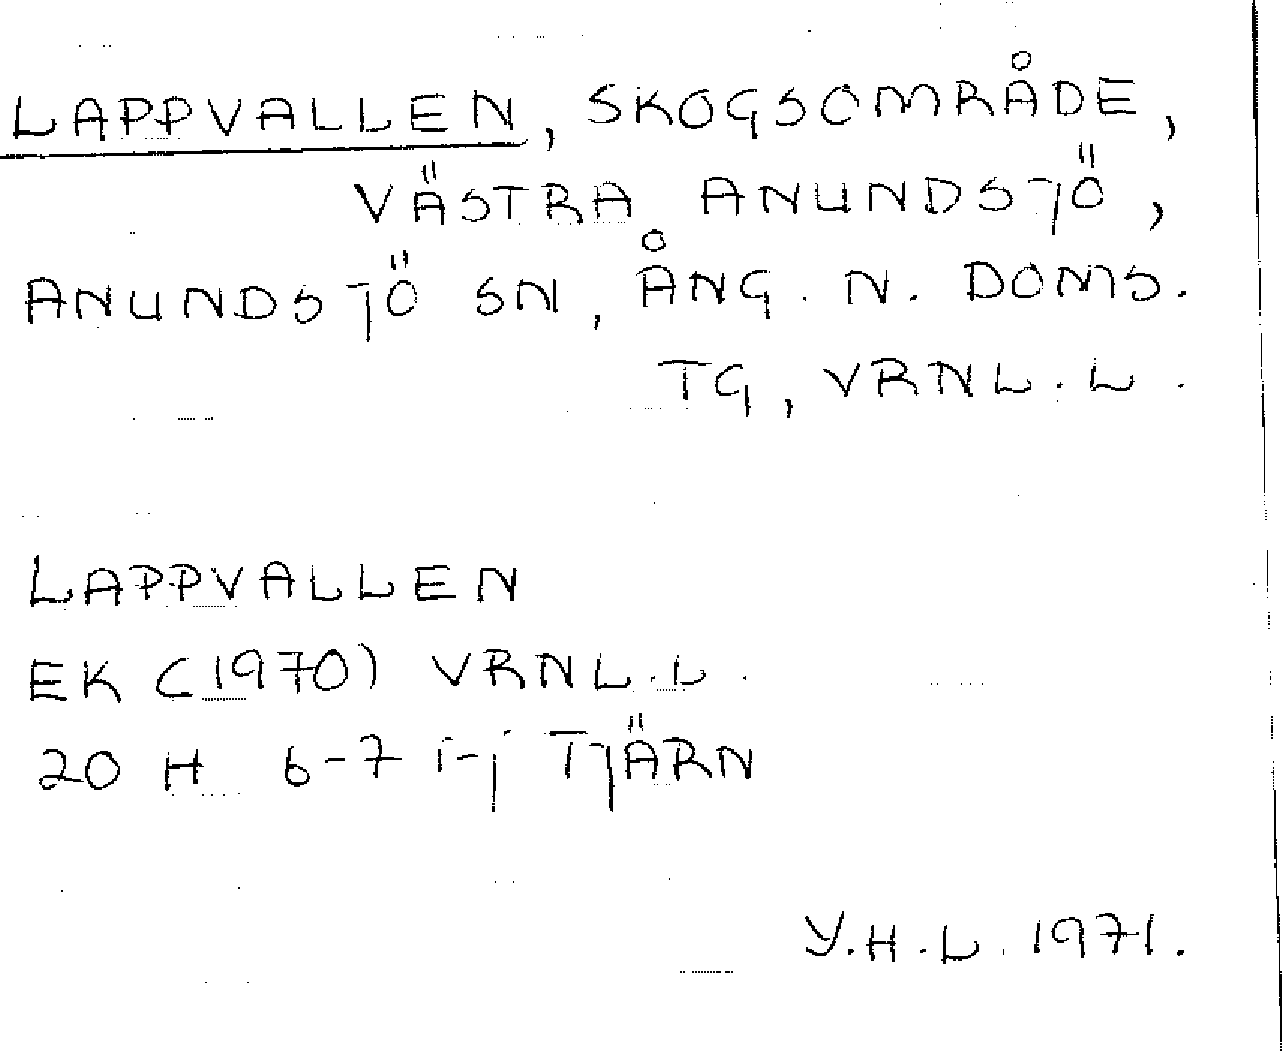 LAPPVALLEN, SKOGSOMRÅDE,
VÄSTRA ANUNDSJÖ,
ANUNDSJÖ SN, ÅNG. N. DOMS.
TG, VRNL.L.
LAPPVALLEN
EK (1970) VRNL.L.
20 H 6-7 i-j TJÄRN
Y.H.L. 1971.